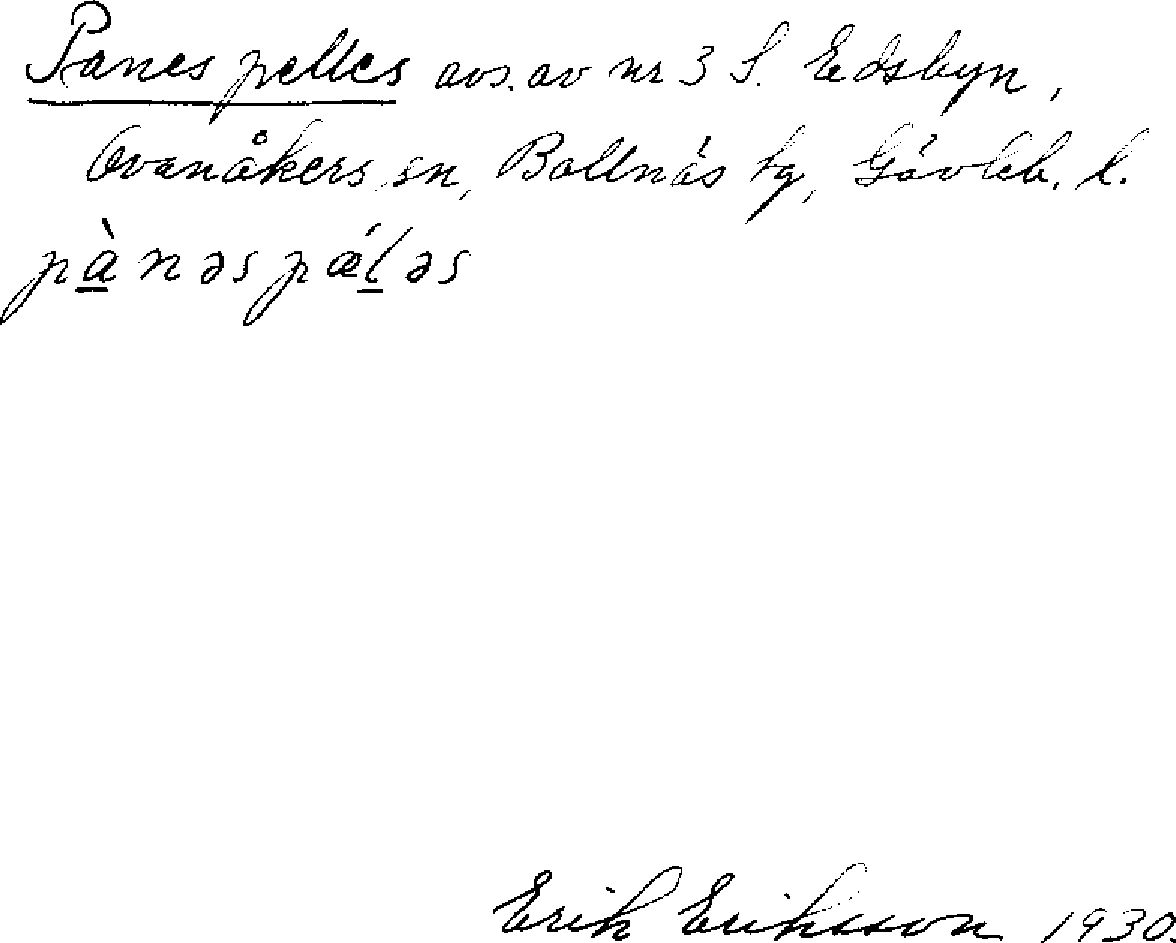 Panes pelles avs. av nr 3 S. Edsbyn,
Ovanåkers sn, Bollnäs tg, Gävleb. l.
pànəspǽləs
Erik Eriksson 1930.